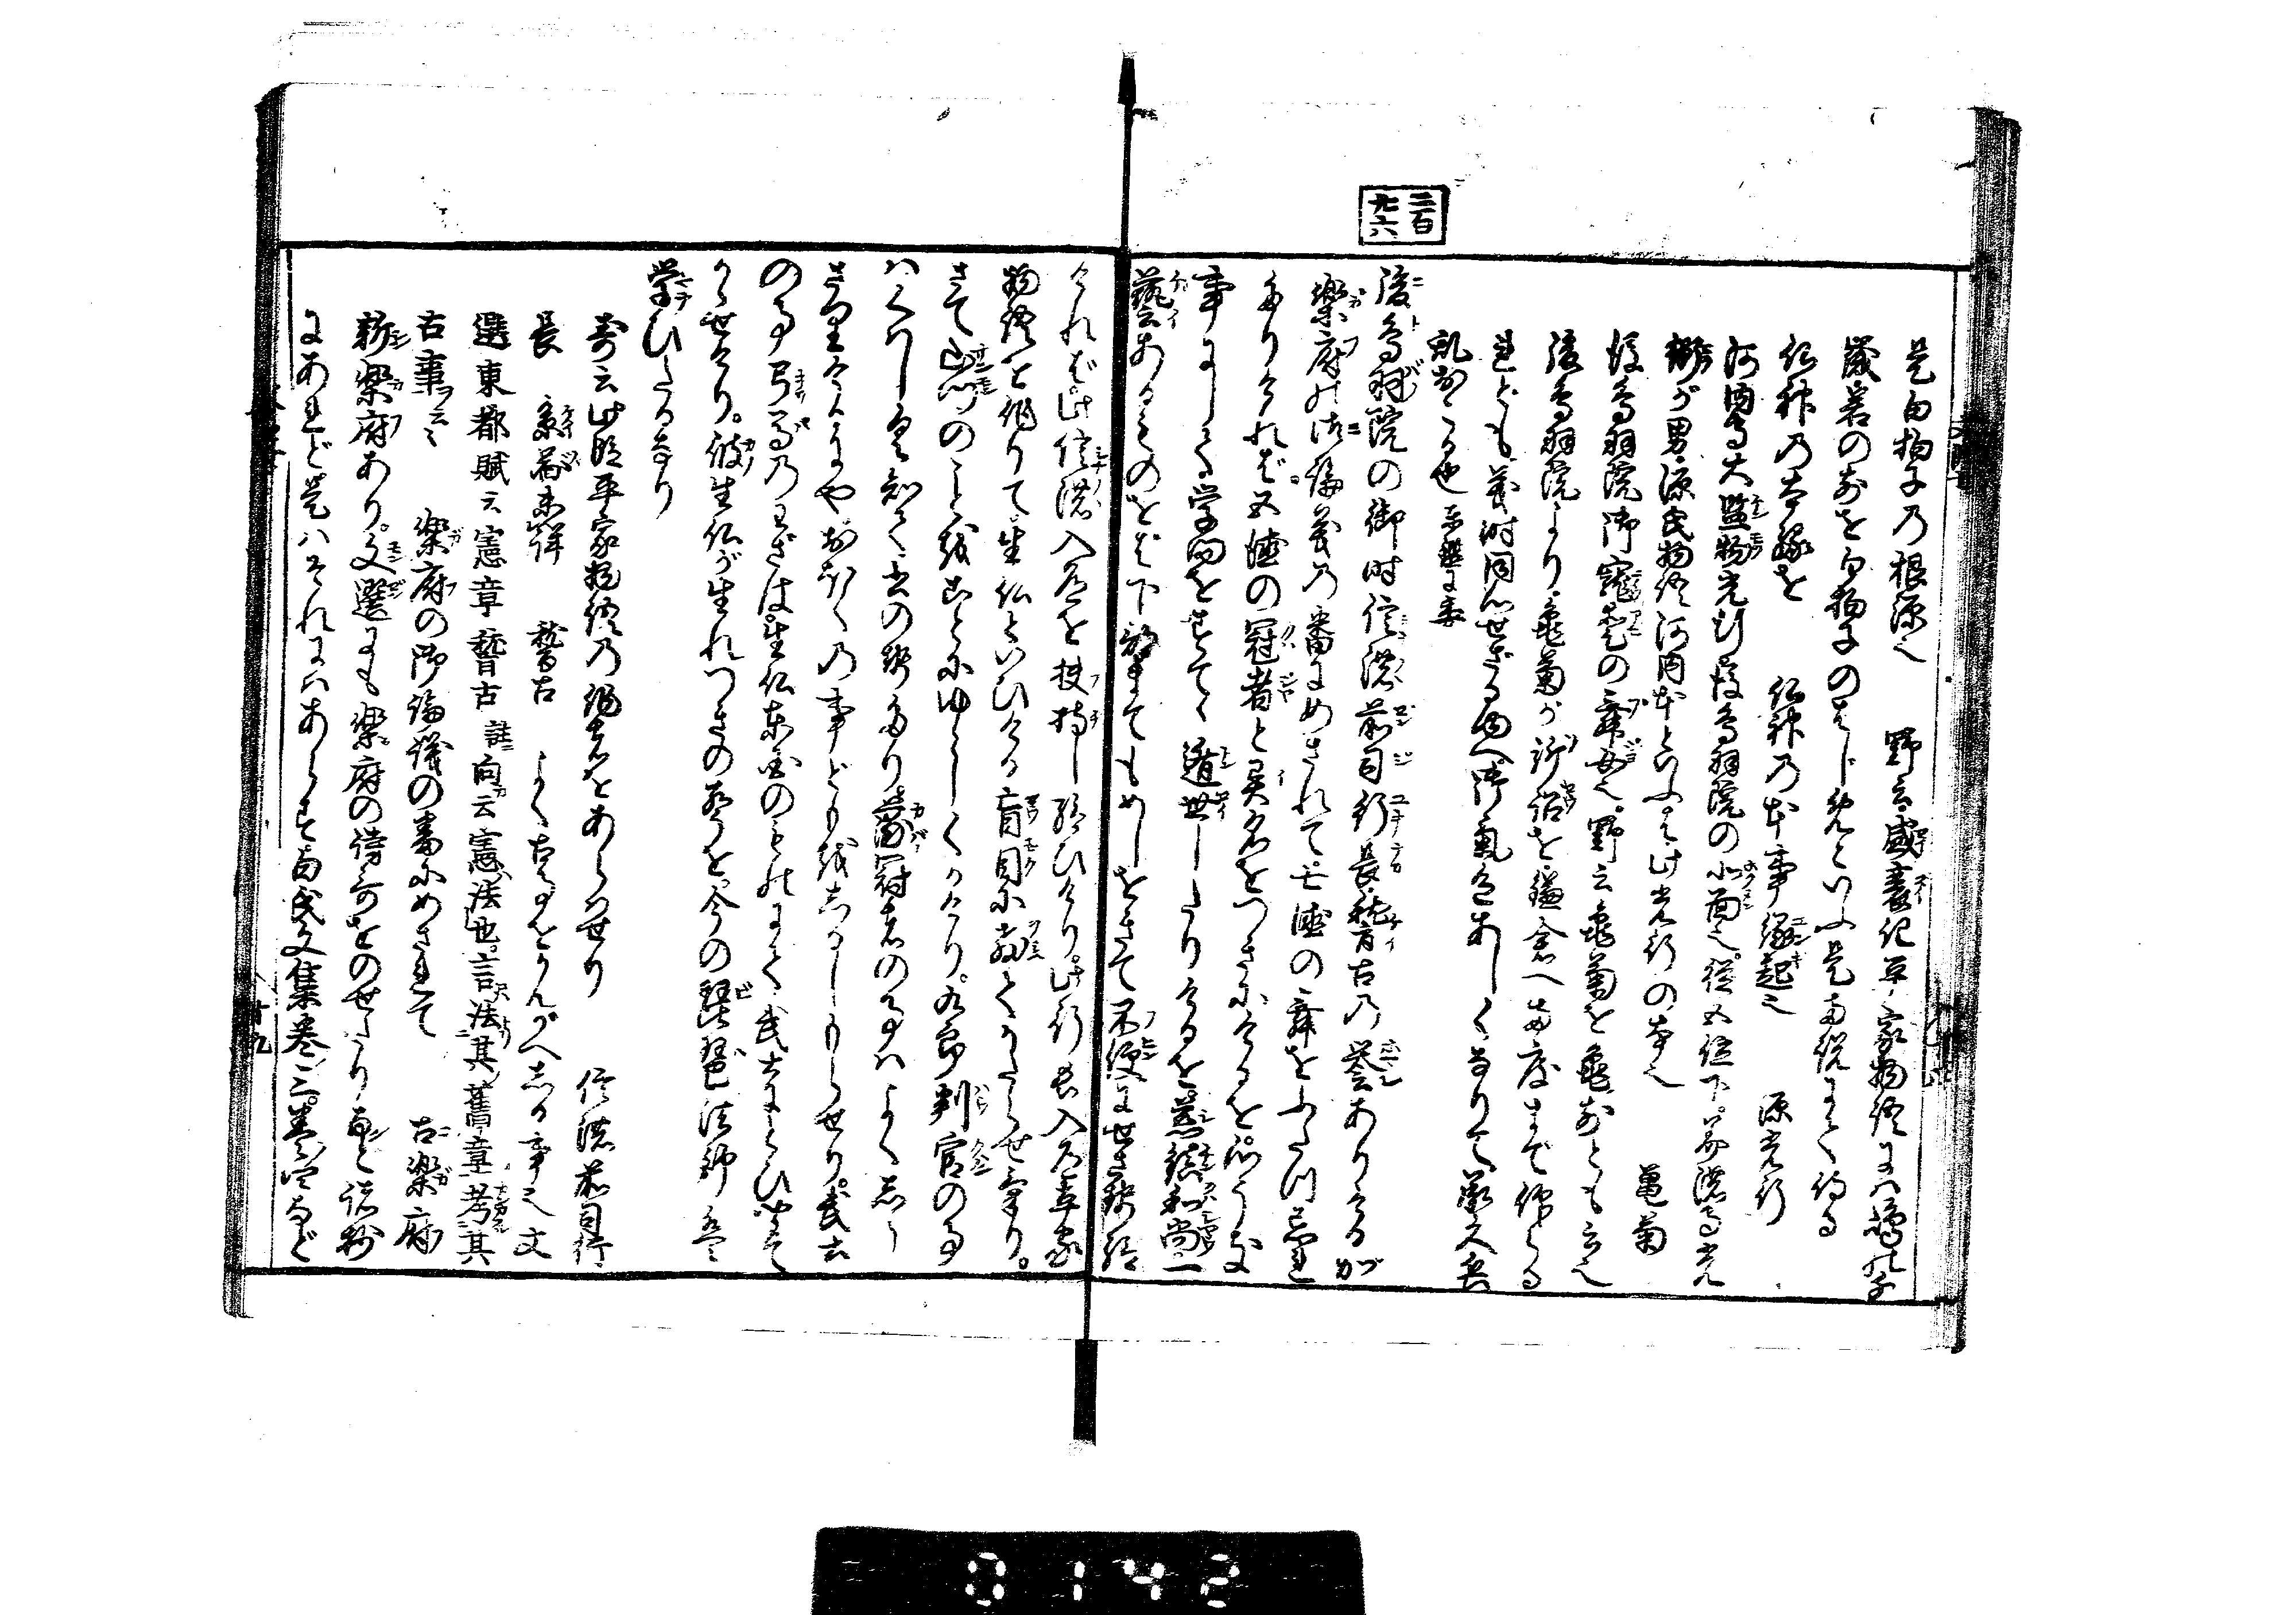 三百
九六
是白拍子乃根源也 野云盛衰記平家物語には嶋の千
歳若のまひを白拍子のはじめといふ是両説にて侍る
仏神乃本縁を 仏神乃本事縁起也 源光行
河内守大監物光行後鳥羽院の北面也従五位下豊後守光
が男源氏物語河内本といふは此光行の本也 亀菊
後鳥羽院御寵愛の舞女也野云亀菊を亀前とも云
後鳥羽院より亀菊が訴詔を鎌倉へ両度まで仰らる
れども義時同心せざる由へ御気色あしくなりて承久兵
乱おこる也東鑑に委
後鳥羽院の御時信濃前司行長稽古の誉ありけるが
楽府の御論義の番にめされて七徳の舞をふたつ忘れ
たりければ五徳の冠者と異名をつきにけるを心うき
事にして学問をすてゝ遁世したりけるを慈鎮和尚一
藝あるものをば下部までもめしをきて不便にせさせ給
ければ此信濃入道を扶持し給ひけり此行長入道平家
物語を作りて生仏といひける盲目に教てかたらせけり
さて山門のことを殊にゆゝしくかけり九郎判官の事
はくはしく知て書のせたり蒲冠者の事はよくしら
ざりけるにやおほくの事どもをしるしもらせり武士
の事弓馬のわざは生仏東国のものにて武士にとひ聞て
かゝせけり彼生仏が生れつきの声を今の琵琶法師は
学びたるなり
寿云此段平家物語乃濫觴をあらはせり 信濃前司行
長 系図未詳 稽古 よく古事をかんがへしる事也文
選東都賦云憲章稽古註向云憲法也言法其旧章考其
古事云々 楽府の御論議の番にめされて 古楽府
新楽府あり文選にも楽府の詩哥をのせたり
にあれど是はそれにはあらず白氏文集巻三巻四など
十九
0142